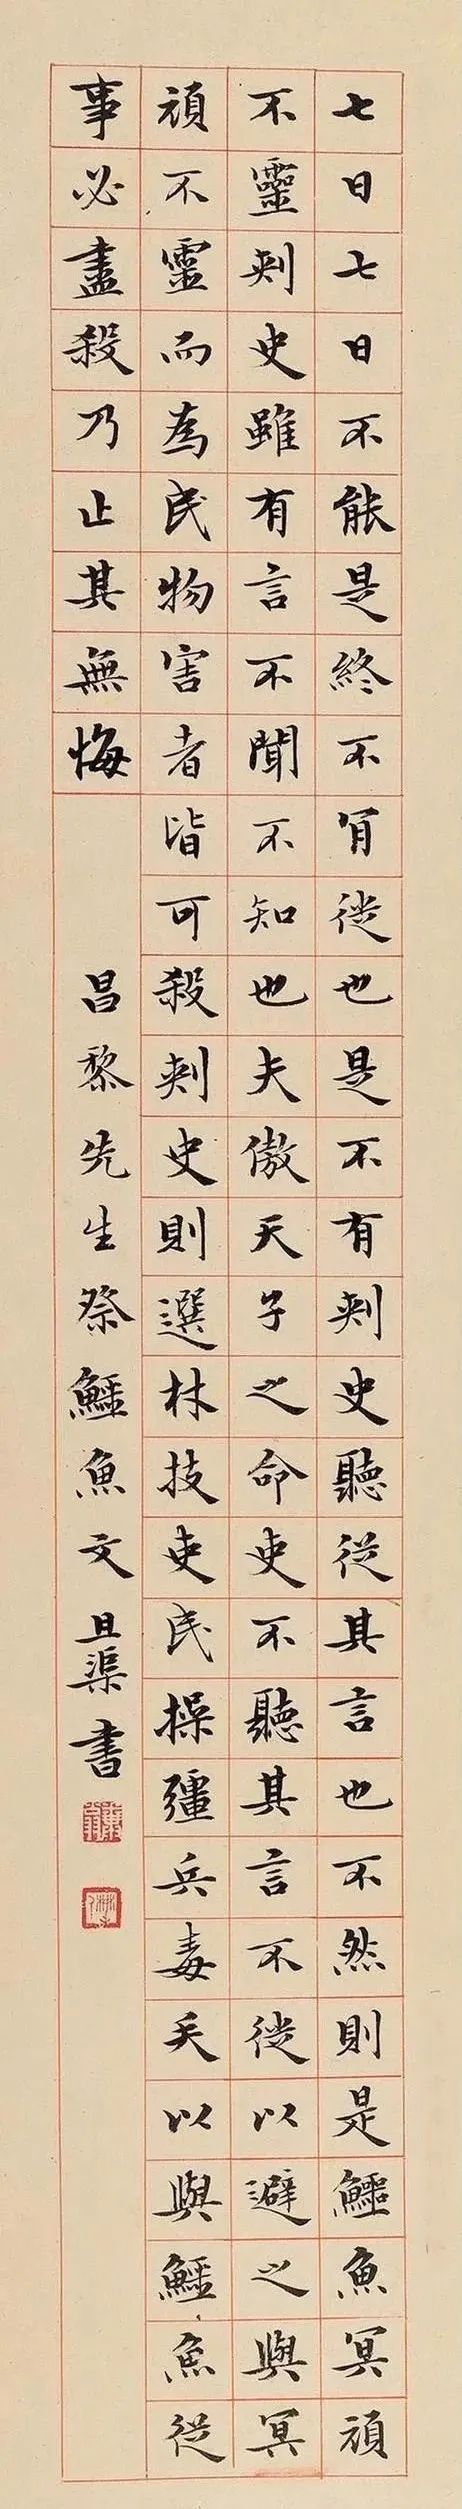 七日七日不能是終不肎徙也是不有刾史聽從其言也不然則是鱷魚冥頑
不靈刾史雖有言不聞不知也夫傲天子之命吏不聽其言不徙以避之與冥
頑不靈而為民物害者皆可殺刾史則選材技吏民操彊兵毒矢以與鱷魚從
事必盡殺乃止其無悔
昌黎先生祭鱷魚文 且渠書